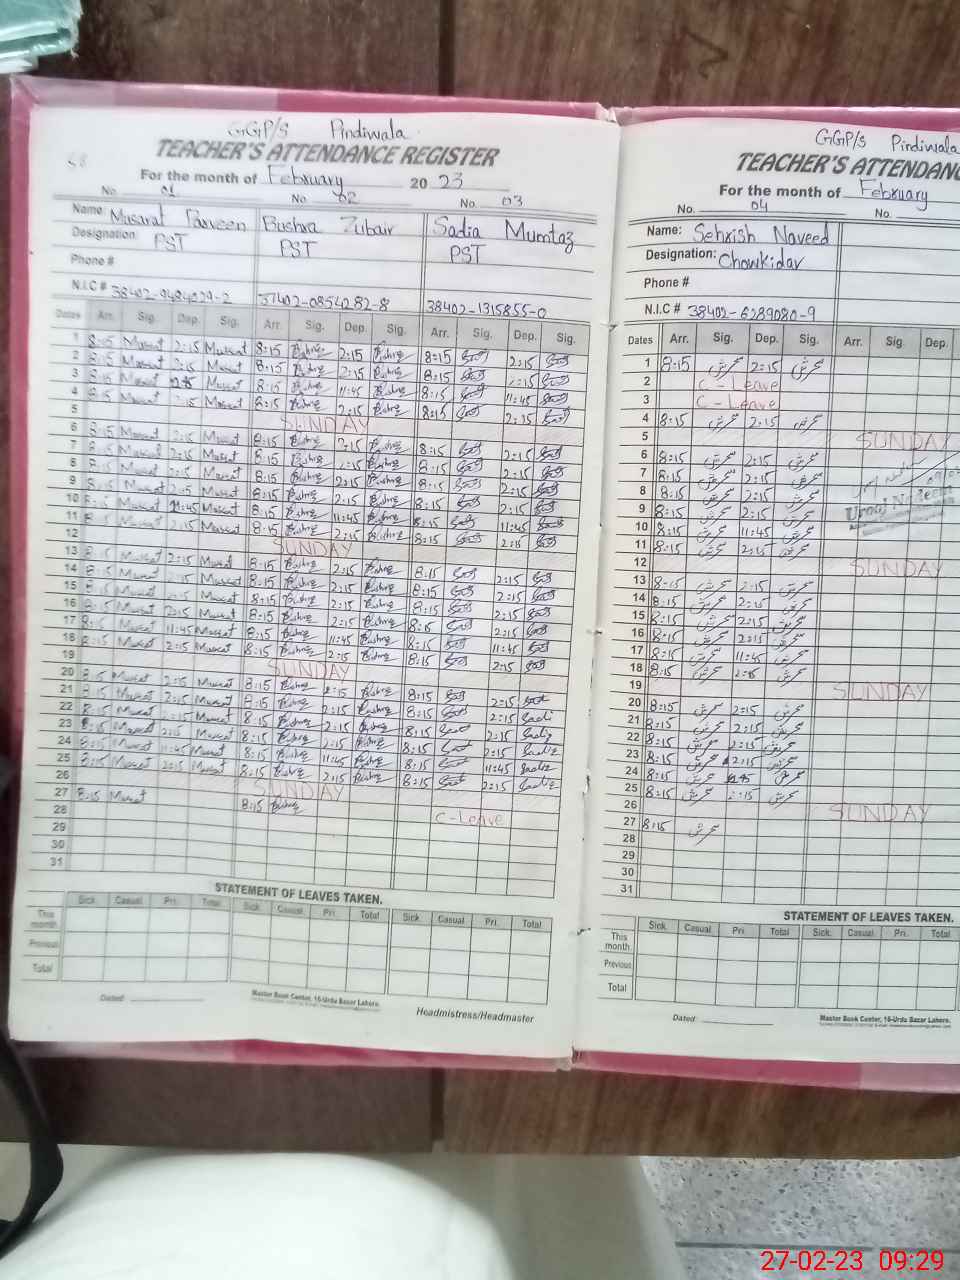 GGP/S Pindiwala
TEACHER'S ATTENDANCE REGISTER
For the month of February 2023
No. 01 No 02 No. 03
Name: Musarat Parveen Bushra Zubair Sadia Mumtaz
Designation: PST PST PST
Phone #
N.I.C # 38402-9484029-2 37402-0854282-8 38402-1315855-0
Dates Arr. Sig. Dep. Sig. Arr. Sig. Dep. Sig. Arr. Sig. Dep. Sig.
1 8:15 Musarat 2:15 Musarat 8:15 2:15 8:15 2:15
2 8:15 Musarat 2:15 Musarat 8:15 2:15 8:15 2:15
3 8:15 Musarat Musarat 8:15 11:45 8:15 11:45
4 8:15 Musarat 2:15 Musarat 8:15 2:15 8:15 2:15
5 SUNDAY
6 8:15 Musarat 2:15 Musarat 8:15 2:15 8:15 2:15
7 8:15 Musarat 2:15 Musarat 8:15 2:15 8:15 2:15
8 8:15 Musarat 2:15 Musarat 8:15 2:15 8:15 2:15
9 8:15 Musarat 2:15 Musarat 8:15 2:15 8:15 2:15
10 8:15 Musarat 11:45 Musarat 8:15 11:45 8:15 11:45
11 8:15 Musarat 2:15 Musarat 8:15 2:15 8:15 2:15
12 SUNDAY
13 8:15 Musarat 2:15 Musarat 8:15 2:15 8:15 2:15
14 8:15 Musarat 2:15 Musarat 8:15 2:15 8:15 2:15
15 8:15 Musarat 2:15 Musarat 8:15 2:15 8:15 2:15
16 8:15 Musarat 2:15 Musarat 8:15 2:15 8:15 2:15
17 8:15 Musarat 11:45 Musarat 8:15 11:45 8:15 11:45
18 8:15 Musarat 2:15 Musarat 8:15 2:15 8:15 2:15
19 SUNDAY
20 8:15 Musarat 2:15 Musarat 8:15 2:15 8:15 2:15
21 8:15 Musarat 2:15 Musarat 8:15 2:15 8:15 2:15
22 8:15 Musarat 2:15 Musarat 8:15 2:15 8:15 2:15
23 8:15 Musarat 2:15 Musarat 8:15 2:15 8:15 2:15
24 8:15 Musarat 11:45 Musarat 8:15 11:45 8:15 11:45
25 8:15 Musarat 2:15 Musarat 8:15 2:15 8:15 2:15
26 SUNDAY
27 8:15 Musarat 8:15 C-Leave
28
29
30
31
STATEMENT OF LEAVES TAKEN.
Sick. Casual. Pri. Total Sick. Casual. Pri. Total Sick. Casual. Pri. Total
This month
Previous
Total
Dated:
Master Book Center, 16-Urdu Bazar Lahore.
Headmistress/Headmaster
GGP/S Pindiwala
TEACHER'S ATTENDANC
For the month of February
No. 04 No.
Name: Sehrish Naveed
Designation: Chowkidar
Phone #
N.I.C # 38402-6289080-9
Dates Arr. Sig. Dep. Sig. Arr. Sig. Dep.
1 8:15 سحرش 2:15 سحرش
2 C-Leave
3 C-Leave
4 8:15 سحرش 2:15 سحرش
5 SUNDAY
6 8:15 سحرش 2:15 سحرش
7 8:15 سحرش 2:15 سحرش
8 8:15 سحرش 2:15 سحرش
9 8:15 سحرش 2:15 سحرش
10 8:15 سحرش 11:45 سحرش
11 8:15 سحرش 2:15 سحرش
12 SUNDAY
13 8:15 سحرش 2:15 سحرش
14 8:15 سحرش 2:15 سحرش
15 8:15 سحرش 2:15 سحرش
16 8:15 سحرش 2:15 سحرش
17 8:15 سحرش 11:45 سحرش
18 8:15 سحرش 2:15 سحرش
19 SUNDAY
20 8:15 سحرش 2:15 سحرش
21 8:15 سحرش 2:15 سحرش
22 8:15 سحرش 2:15 سحرش
23 8:15 سحرش 2:15 سحرش
24 8:15 سحرش سحرش
25 8:15 سحرش 2:15 سحرش
26 SUNDAY
27 8:15 سحرش
28
29
30
31
STATEMENT OF LEAVES TAKEN.
Sick. Casual. Pri. Total Sick. Casual. Pri. Total
This month
Previous
Total
Dated:
Master Book Center, 16-Urdu Bazar Lahore.
27-02-23 09:29